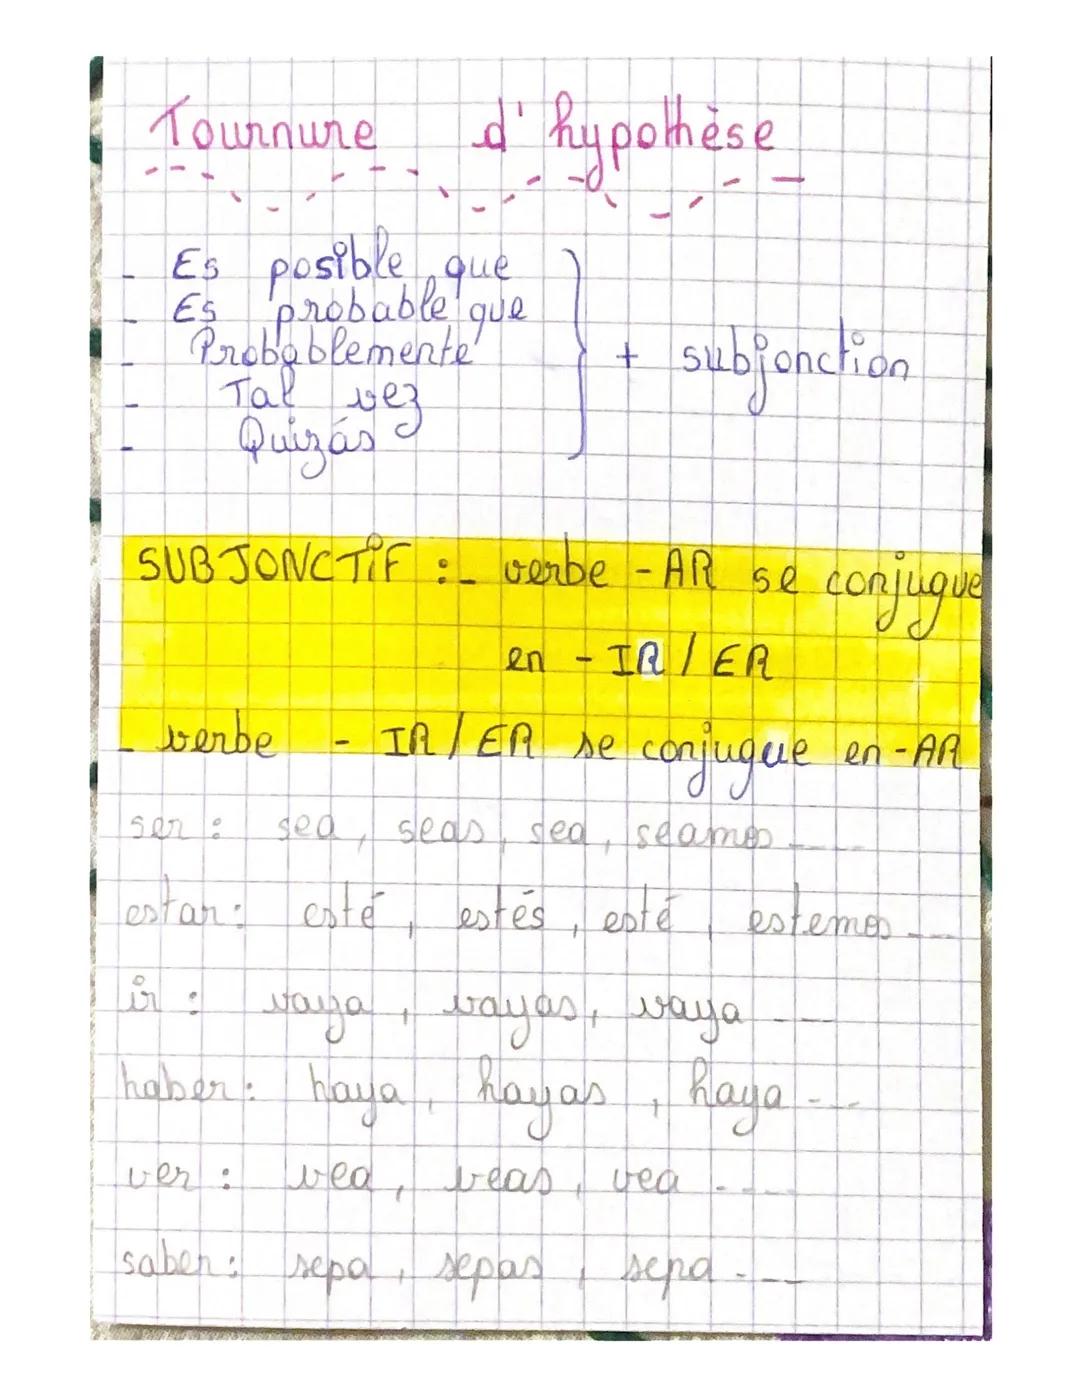 Tournure d'hypothèse
- Es posible que
- Es probable que
- Probablemente
- Tal vez
- Quizás
+ subjonction
SUBJONCTIF :- verbe -AR se conjugue
en - IR / ER
- verbe - IR / ER se conjugue en -AR
ser : sea, seas, sea, seamos ....
estar : esté, estés, esté, estemos ...
ir : vaya, vayas, vaya ...
haber : haya, hayas, haya ...
ver : vea, veas, vea ....
saber : sepa, sepas, sepa ...